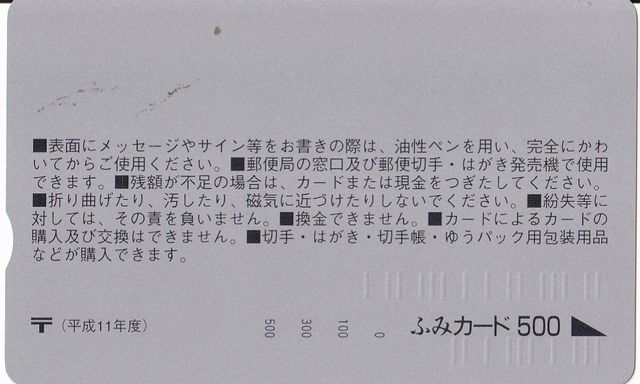 ■表面にメッセージやサイン等をお書きの際は、油性ペンを用い、完全にかわ
いてからご使用ください。■郵便局の窓口及び郵便切手・はがき発売機で使用
できます。■残額が不足の場合は、カードまたは現金をつぎたしてください。
■折り曲げたり、汚したり、磁気に近づけたりしないでください。■紛失等に
対しては、その責を負いません。■換金できません。■カードによるカードの
購入及び交換はできません。■切手・はがき・切手帳・ゆうパック用包装用品
などが購入できます。
〒（平成11年度） 500 300 100 0 ふみカード 500